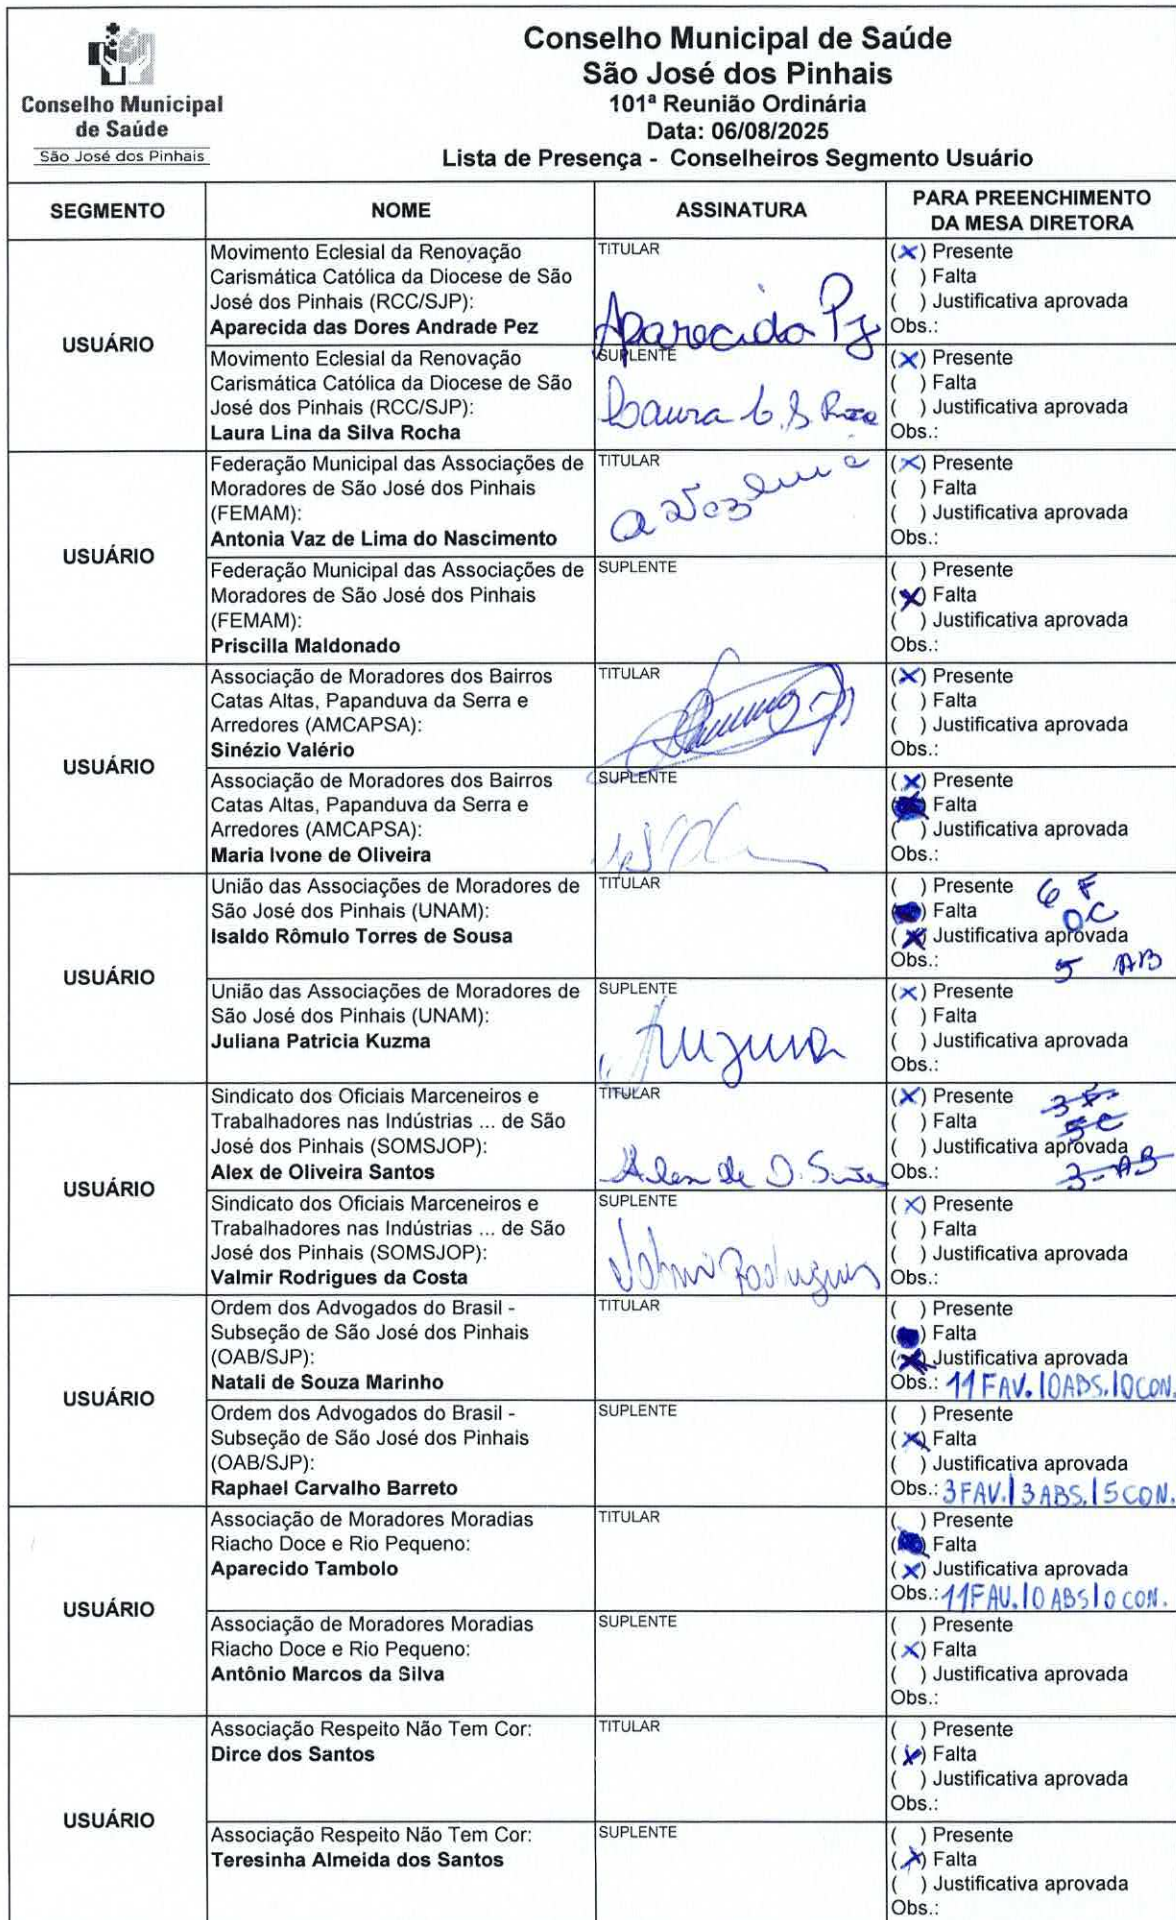 Conselho Municipal
de Saúde
São José dos Pinhais
Conselho Municipal de Saúde
São José dos Pinhais
101ª Reunião Ordinária
Data: 06/08/2025
Lista de Presença - Conselheiros Segmento Usuário
SEGMENTO
NOME
ASSINATURA
PARA PREENCHIMENTO
DA MESA DIRETORA
USUÁRIO
Movimento Eclesial da Renovação
Carismática Católica da Diocese de São
José dos Pinhais (RCC/SJP):
Aparecida das Dores Andrade Pez
TITULAR
Aparecida Pz
(X) Presente
( ) Falta
( ) Justificativa aprovada
Obs.:
Movimento Eclesial da Renovação
Carismática Católica da Diocese de São
José dos Pinhais (RCC/SJP):
Laura Lina da Silva Rocha
SUPLENTE
Laura L. S. Rocha
(X) Presente
( ) Falta
( ) Justificativa aprovada
Obs.:
USUÁRIO
Federação Municipal das Associações de
Moradores de São José dos Pinhais
(FEMAM):
Antonia Vaz de Lima do Nascimento
TITULAR
(X) Presente
( ) Falta
( ) Justificativa aprovada
Obs.:
Federação Municipal das Associações de
Moradores de São José dos Pinhais
(FEMAM):
Priscilla Maldonado
SUPLENTE
( ) Presente
(X) Falta
( ) Justificativa aprovada
Obs.:
USUÁRIO
Associação de Moradores dos Bairros
Catas Altas, Papanduva da Serra e
Arredores (AMCAPSA):
Sinézio Valério
TITULAR
(X) Presente
( ) Falta
( ) Justificativa aprovada
Obs.:
Associação de Moradores dos Bairros
Catas Altas, Papanduva da Serra e
Arredores (AMCAPSA):
Maria Ivone de Oliveira
SUPLENTE
(X) Presente
Falta
( ) Justificativa aprovada
Obs.:
USUÁRIO
União das Associações de Moradores de
São José dos Pinhais (UNAM):
Isaldo Rômulo Torres de Sousa
TITULAR
( ) Presente 6 F
( ) Falta 0C
(X) Justificativa aprovada
Obs.: 5 AB
União das Associações de Moradores de
São José dos Pinhais (UNAM):
Juliana Patricia Kuzma
SUPLENTE
Kuzma
(X) Presente
( ) Falta
( ) Justificativa aprovada
Obs.:
USUÁRIO
Sindicato dos Oficiais Marceneiros e
Trabalhadores nas Indústrias ... de São
José dos Pinhais (SOMSJOP):
Alex de Oliveira Santos
TITULAR
Alex de O. Santos
(X) Presente 3 F
( ) Falta 5C
( ) Justificativa aprovada
Obs.: 3-AB
Sindicato dos Oficiais Marceneiros e
Trabalhadores nas Indústrias ... de São
José dos Pinhais (SOMSJOP):
Valmir Rodrigues da Costa
SUPLENTE
Valmir Rodrigues
(X) Presente
( ) Falta
( ) Justificativa aprovada
Obs.:
USUÁRIO
Ordem dos Advogados do Brasil -
Subseção de São José dos Pinhais
(OAB/SJP):
Natali de Souza Marinho
TITULAR
( ) Presente
( ) Falta
(X) Justificativa aprovada
Obs.: 11 FAV. | 0 ABS. | 0 CON.
Ordem dos Advogados do Brasil -
Subseção de São José dos Pinhais
(OAB/SJP):
Raphael Carvalho Barreto
SUPLENTE
( ) Presente
(X) Falta
( ) Justificativa aprovada
Obs.: 3 FAV. | 3 ABS. | 5 CON.
USUÁRIO
Associação de Moradores Moradias
Riacho Doce e Rio Pequeno:
Aparecido Tambolo
TITULAR
( ) Presente
( ) Falta
(X) Justificativa aprovada
Obs.: 11 FAV. | 0 ABS | 0 CON.
Associação de Moradores Moradias
Riacho Doce e Rio Pequeno:
Antônio Marcos da Silva
SUPLENTE
( ) Presente
(X) Falta
( ) Justificativa aprovada
Obs.:
USUÁRIO
Associação Respeito Não Tem Cor:
Dirce dos Santos
TITULAR
( ) Presente
(X) Falta
( ) Justificativa aprovada
Obs.:
Associação Respeito Não Tem Cor:
Teresinha Almeida dos Santos
SUPLENTE
( ) Presente
(X) Falta
( ) Justificativa aprovada
Obs.: